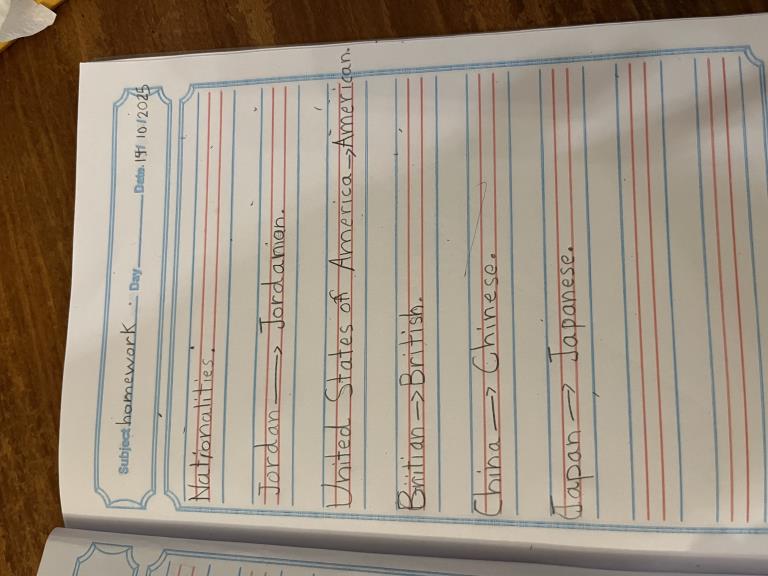 Subject homework Day Date 19/10/2025
Nationalities:
Jordan → Jordanian.
United States of America → American.
Britian → British.
China → Chinese.
Japan → Japanese.